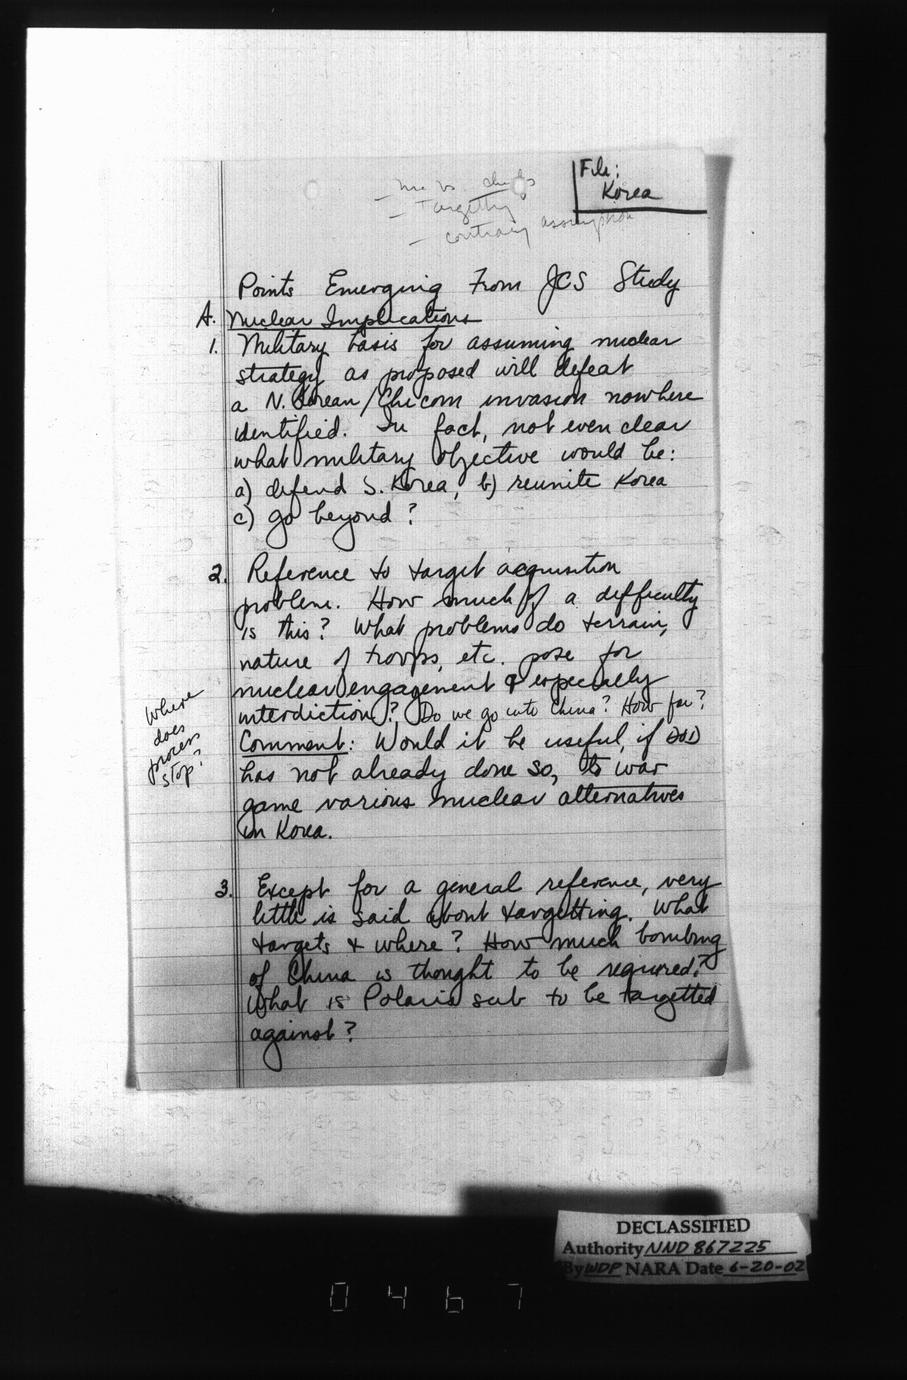 File:
Korea
vs.
- Targetting
- contrary assumption
Points Emerging From JCS Study
A. Nuclear Implications
1. Military basis for assuming nuclear
strategy as proposed will defeat
a N. Korean/Chicom invasion nowhere
identified. In fact, not even clear
what military objective would be:
a) defend S. Korea, b) reunite Korea
c) go beyond?
2. Reference to target acquisition
problem. How much of a difficulty
is this? What problems do terrain,
nature of troops, etc. pose for
nuclear engagement & especially
interdiction? Do we go into China? How far?
Where
does
process
stop?
Comment: Would it be useful, if DOD
has not already done so, to war
game various nuclear alternatives
in Korea.
3. Except for a general reference, very
little is said about targetting. What
targets & where? How much bombing
of China is thought to be required?
What is Polaris sub to be targetted
against?
DECLASSIFIED
Authority NND 867225
By WDP NARA Date 6-20-02
0467